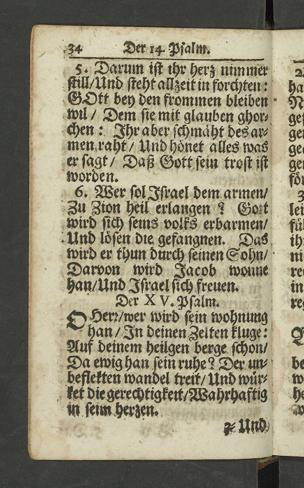 34 Der 14 Psalm.
5. Darum ist ihr herz nimmer
still/Und steht allzeit in forchten:
GOtt bey den frommen bleiben
wil / Dem sie mit glauben ghor-
chen: Ihr aber schmäht des ar-
men raht/ Und hönet alles was
er sagt/ Daß Gott sein trost ist
worden.
6. Wer sol Israel dem armen/
Zu Zion heil erlangen? Gott
wird sich seins volks erbarmen/
Und lösen die gefangnen. Das
wird er thun durch seinen Sohn/
Darvon wird Jacob wonne
han/Und Israel sich freuen.
Der XV. Psalm.
O Herr/wer wird sein wohnung
han / In deinen Zelten kluge:
Auf deinem heilgen berge schon/
Da ewig han sein ruhe? Der un-
beflekten wandel treit/ Und wür-
ket die gerechtigkeit/Wahrhaftig
in seim herzen.
2. Und